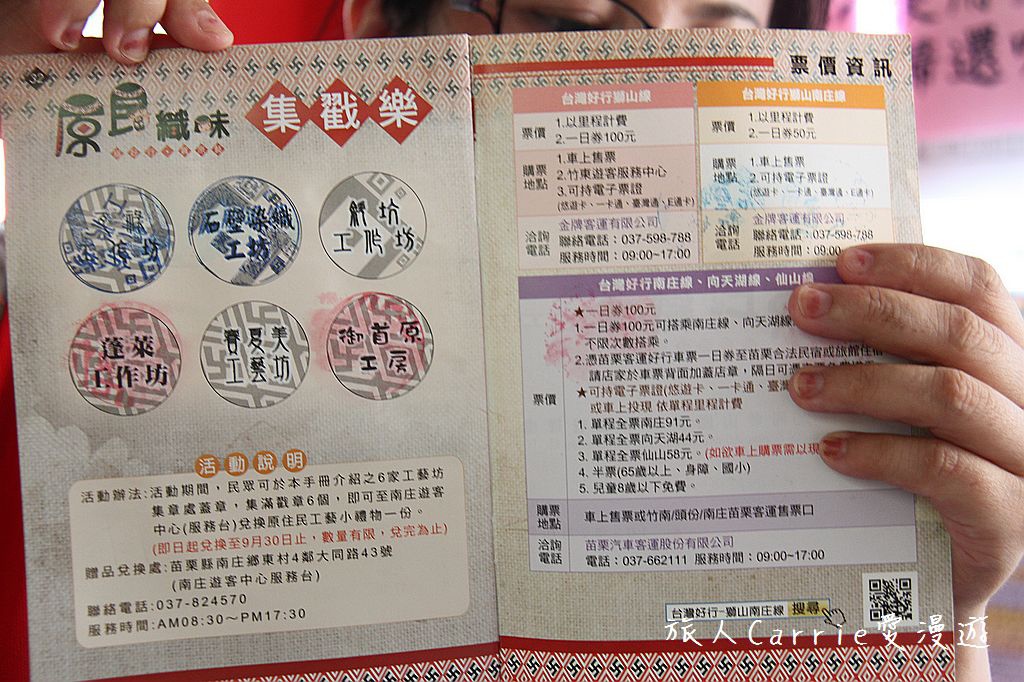 原民織味
集戳樂
石壁染織
工坊
蓬萊
工作坊
賽夏美
工藝坊
御首原
工房
活動說明
活動辦法:活動期間,民眾可於本手冊介紹之6家工藝坊
集章處蓋章,集滿戳章6個,即可至南庄遊客
中心(服務台)兌換原住民工藝小禮物一份。
(即日起兌換至9月30日止,數量有限,兌完為止)
贈品兌換處:苗栗縣南庄鄉東村4鄰大同路43號
(南庄遊客中心服務台)
聯絡電話:037-824570
服務時間:AM08:30~PM17:30
票價資訊
台灣好行獅山線
票價
1.以里程計費
2.一日券100元
購票
地點
1.車上售票
2.竹東遊客服務中心
3.可持電子票證
(悠遊卡、一卡通、臺灣通、E通卡)
洽詢
電話
金牌客運有限公司
聯絡電話:037-598-788
服務時間:09:00~17:00
台灣好行獅山南庄線
票價
1.以里程計費
2.一日券50元
購票
地點
1.車上售票
2.可持電子票證
(悠遊卡、一卡通、臺灣通、E通卡)
洽詢
電話
金牌客運有限公司
聯絡電話:037-598-788
服務時間:09:00
台灣好行南庄線、向天湖線、仙山線
票價
★一日券100元
1.一日券100元可搭乘南庄線、向天湖線
不限次數搭乘。
2.憑苗栗客運好行車票一日券至苗栗合法民宿或旅館住宿
請店家於車票背面加蓋店章,隔日可憑
★可持電子票證(悠遊卡、一卡通、臺灣
或車上投現 依單程里程計費
1. 單程全票南庄91元。
2. 單程全票向天湖44元。
3. 單程全票仙山58元。(如欲車上購票需以現
4. 半票(65歲以上、身障、國小)
5. 兒童8歲以下免費。
購票
地點
車上售票或竹南/頭份/南庄苗栗客運售票口
洽詢
電話
苗栗汽車客運股份有限公司
電話:037-662111 服務時間:09:00~17:00
台灣好行-獅山南庄線 搜尋
旅人Carrie愛漫遊